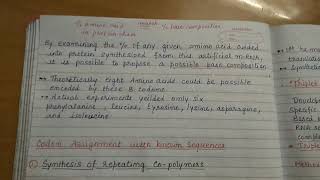 % amino acid mRNA % base composition
in protein chain
By examining the % of any given amino acid added
into protein synthesized from this artificial mRNA, it
is possible to propose a possible base composition.
→ Theoretically eight Amino acids could be possible
encoded by these 8 codons
→ Actual experiments yeilded only six
phenylalanine, leucine, tyrosine, lysine, asparagine,
and isoleucine
Codon Assignment with known Sequences
① Synthesis of repeating Co-polymers
translation
Synthesis
"Triplet
Develop
Based on
RNA se
comple
Method